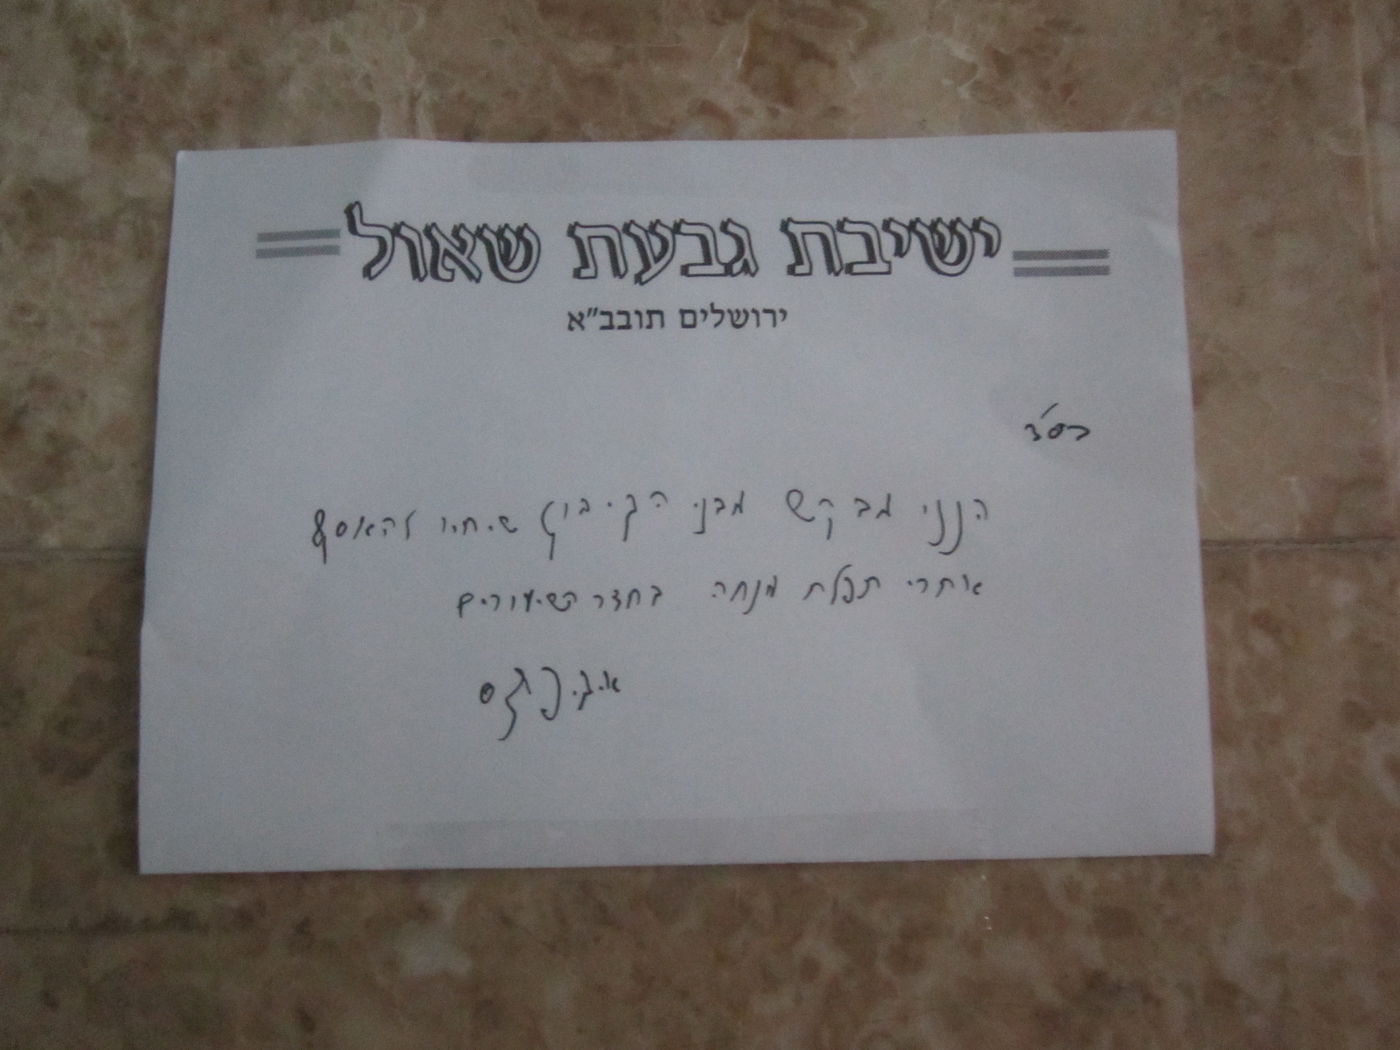 ישיבת גבעת שאול
ירושלים תובב"א
בס"ד
הנני מבקש מבני הקיבוץ שיחיו להאסף
אחרי תפלת מנחה בחדר השיעורים